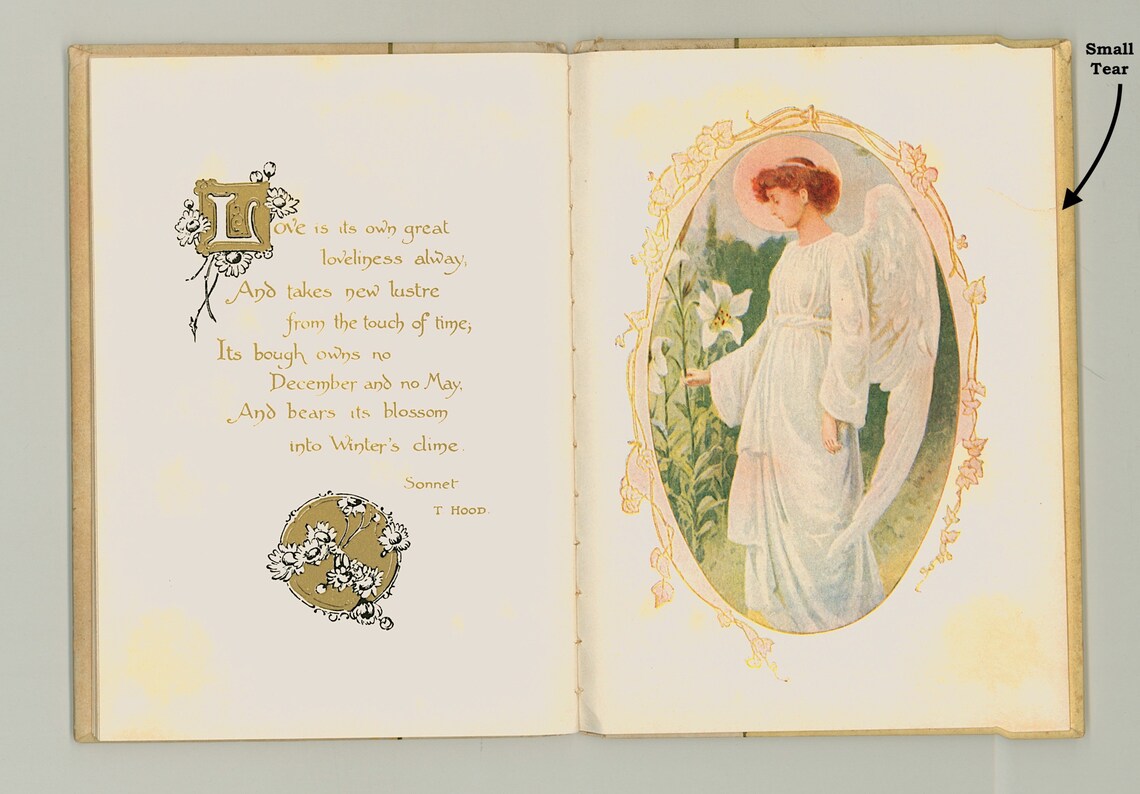 Love is its own great
loveliness alway,
And takes new lustre
from the touch of time;
Its bough owns no
December and no May,
And bears its blossom
into Winter's clime.
Sonnet
T HOOD.
Small
Tear